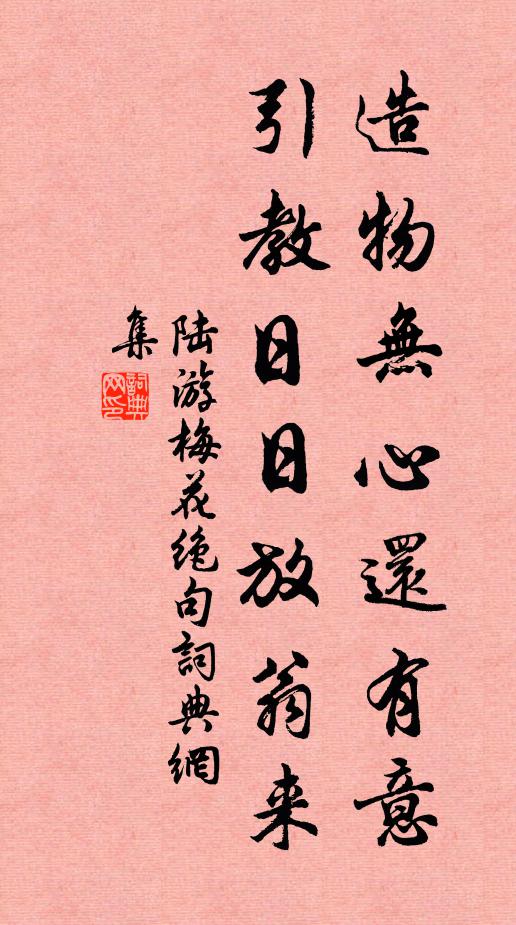 造物無心還有意
引教日日放翁来
陆游梅花绝句詞典網
集
詞典网印